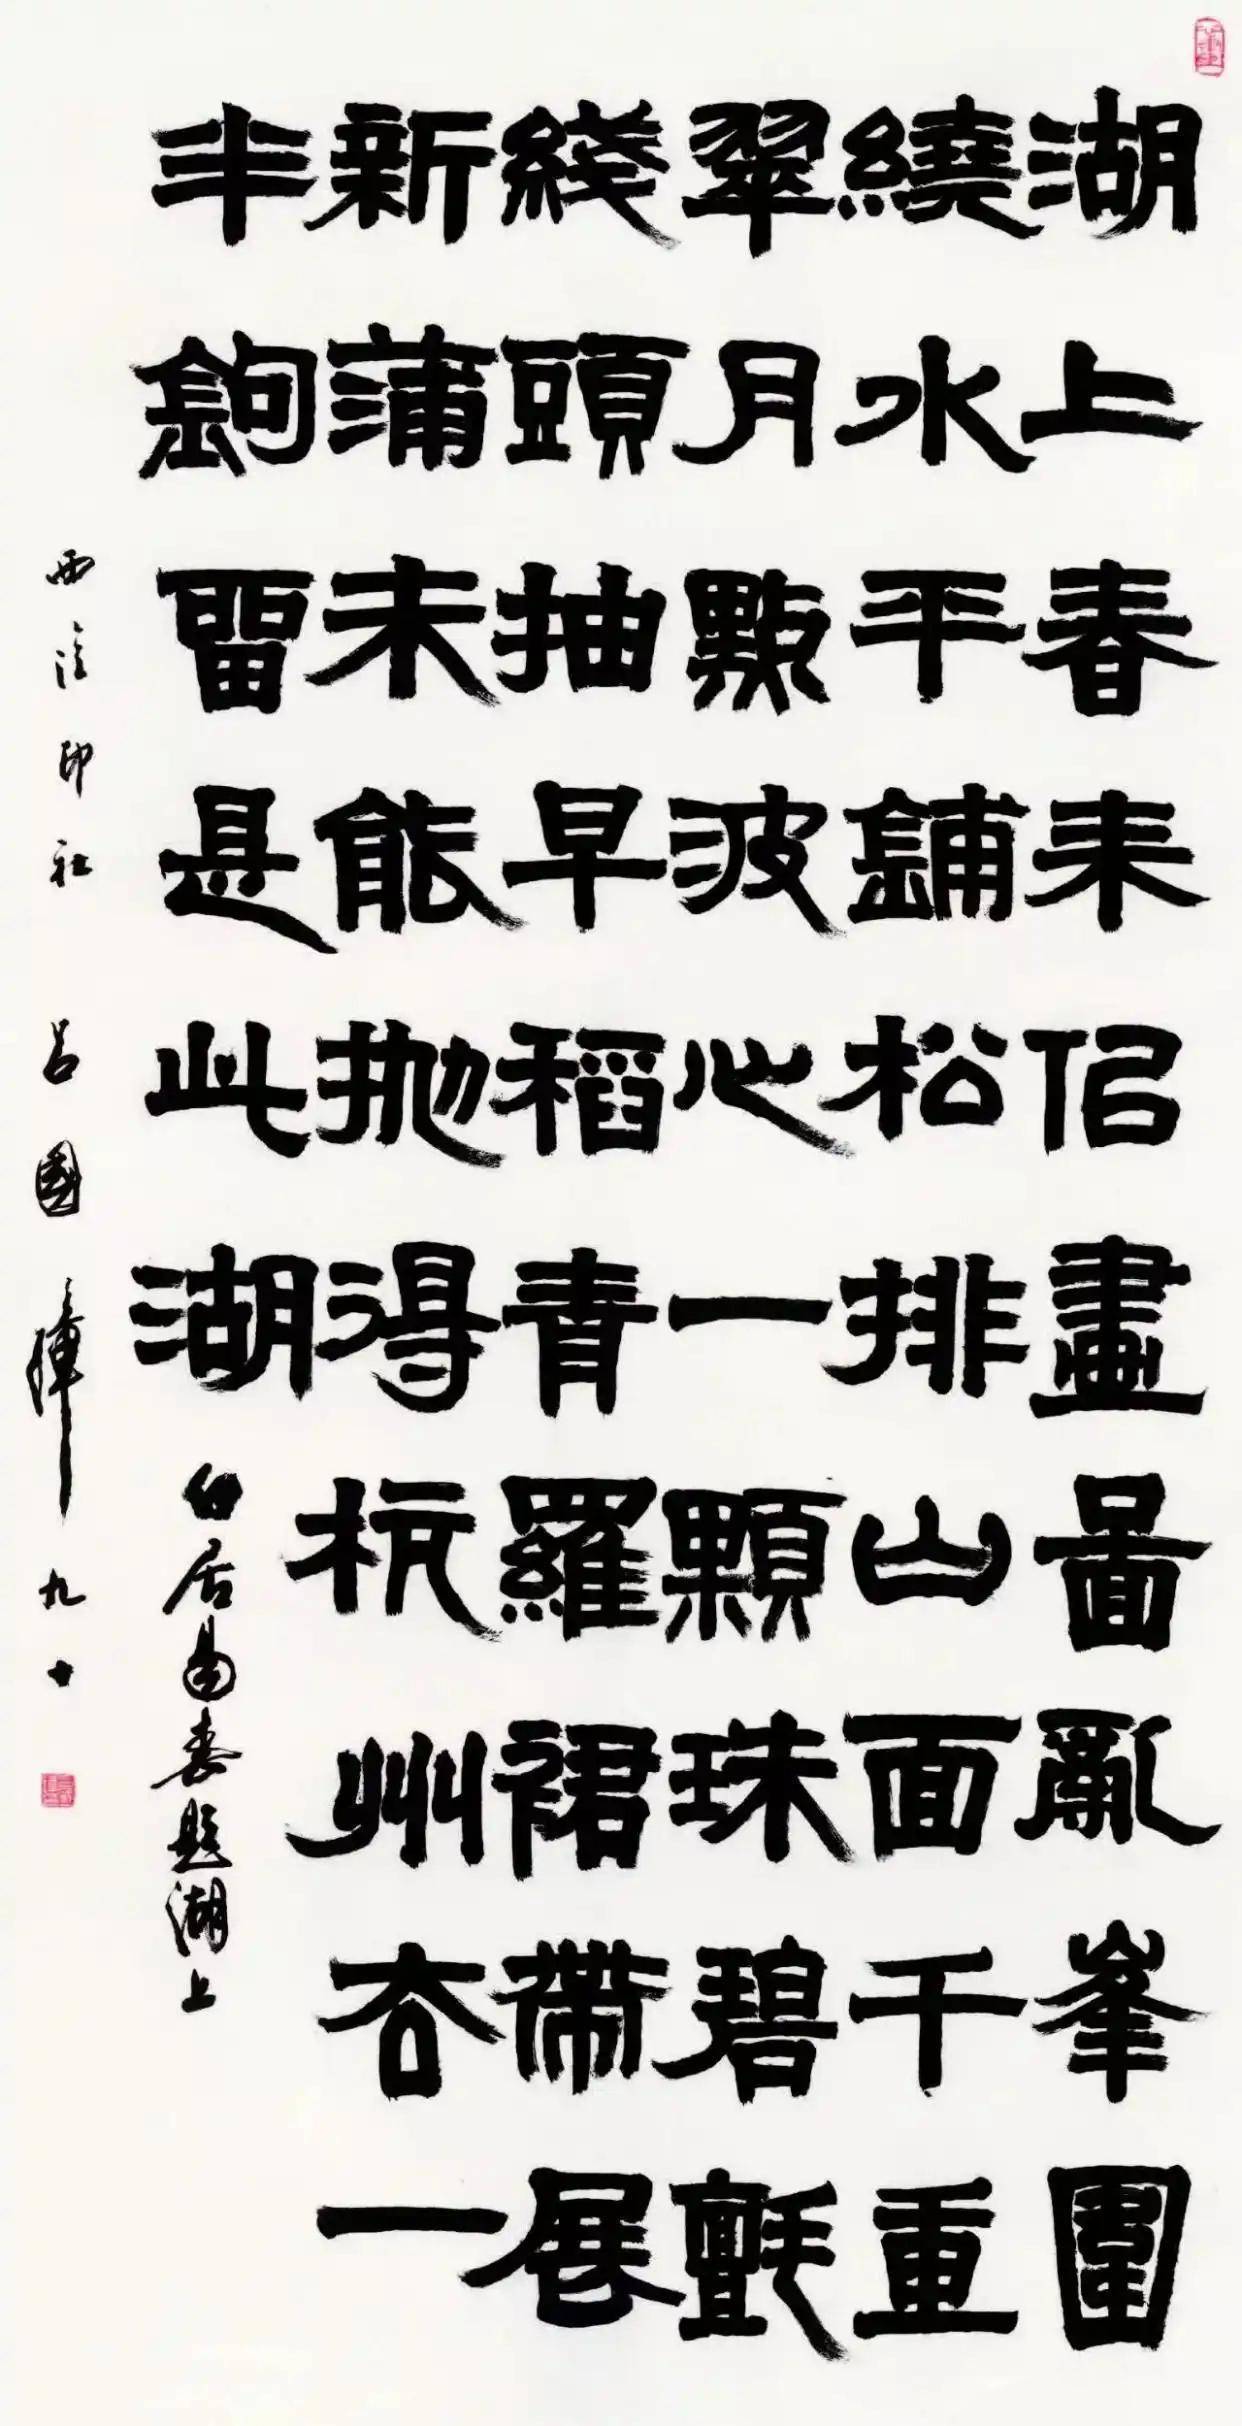 湖上春来佀畫啚亂峯圍
繞水平鋪松排山面千重
翠月點波心一顆珠碧氈
綫頭抽早稻青羅裙帶展
新蒲未能抛得杭州去一
半鉤留是此湖
白居易春題湖上
西泠印社 吕國璋 九十